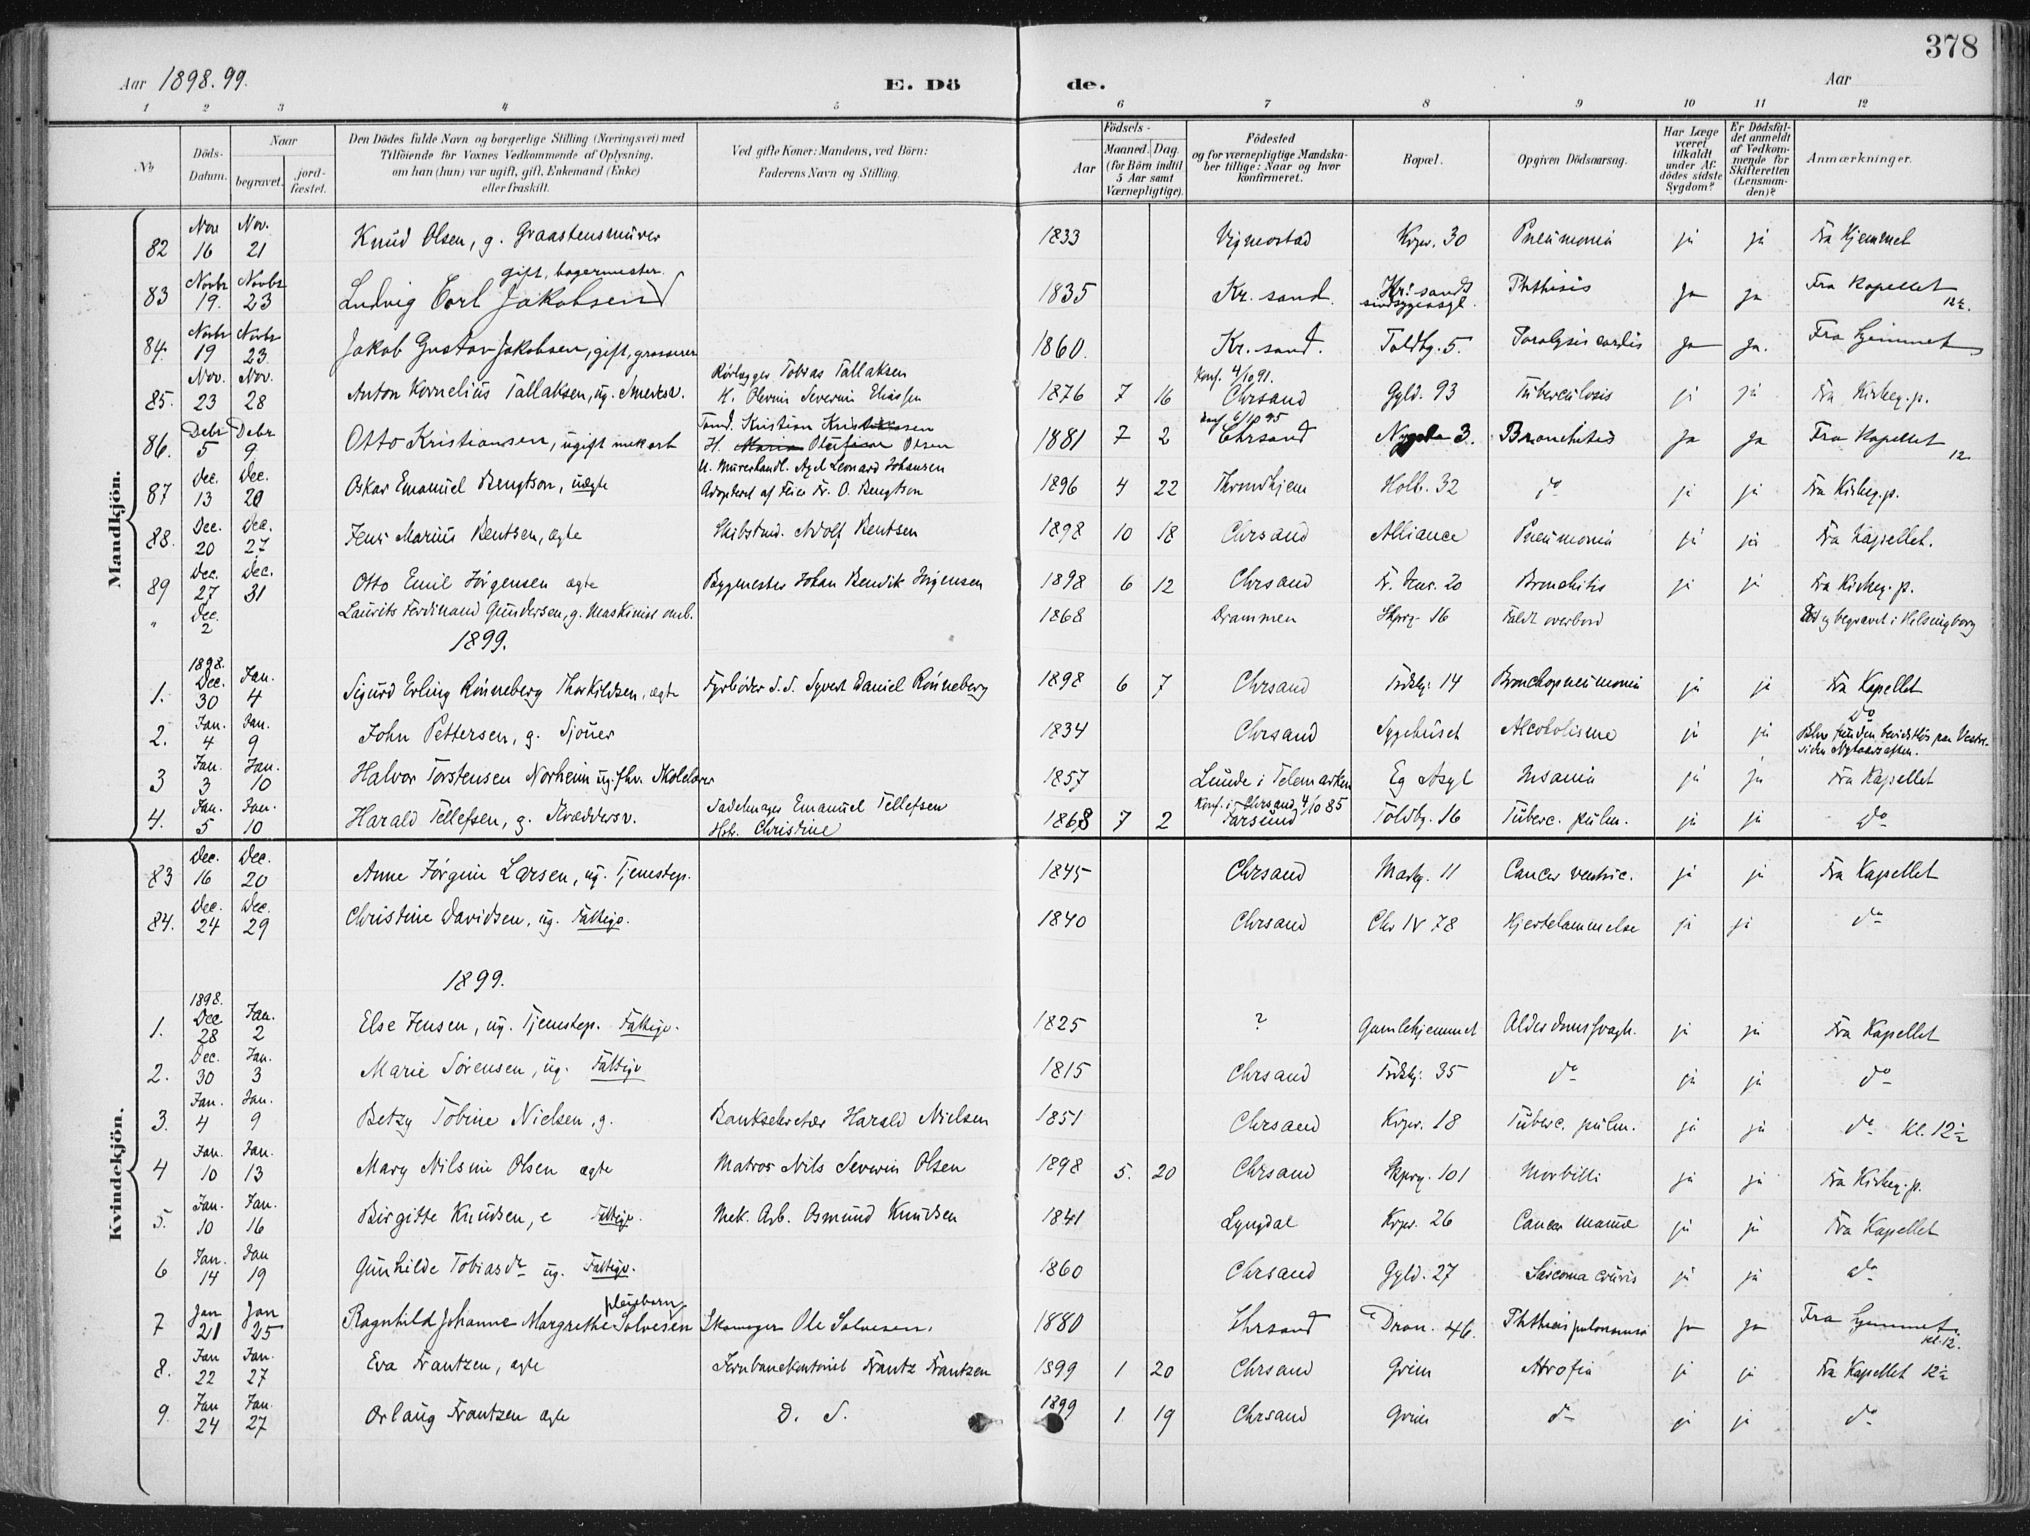 378
Aar 1898.99.
E. Dö
de.
Aar
1 2 3 4 5 6 7 8 9 10 11 12
Nº
Döds-Datum.
Naar
begravet.
jordfæstet.
Den Dödes fulde Navn og borgerlige Stilling (Næringsvei) med
Tilföiende for Voxnes Vedkommende af Oplysning,
om han (hun) var ugift, gift, Enkemand (Enke)
eller fraskilt.
Ved gifte Koner: Mandens, ved Börn:
Faderens Navn og Stilling.
Födsels-
Aar
Maaned. Dag.
(for Börn indtil
5 Aar samt
Værnepligtige).
Födested
og for værnepligtige Mandskaber tillige: Naar og hvor
konfirmeret.
Bopæl.
Opgiven Dödsaarsag.
Har Læge
været
tilkaldt
under Afdödes sidste
Sygdom?
Er Dödsfaldet anmeldt
af Vedkommende for
Skifteretten
(Lensmanden)?
Anmærkninger.
Mandkjön.
82 Nov. 16 Nov. 21 Knud Olsen, g. Graastensmurer 1833 Vigmostad Krpr. 30 Pneumonia ja ja Fra Hjemmet
83 Novbr 19. Novbr 23 Ludvig Carl Jakobsen gift, bagermester. 1835 Kr. sand. Kr:sands sindssygeasyl. Phthisis Ja ja Fra Kapellet 12½.
84. Novbr 19 Novbr 23 Jakob Gustav Jakobsen, gift, grosserer 1860. Kr. sand. Toldbg. 5. Paralysis cordis Ja Ja. Fra Hjemmet
85. Nov. 23 Nov. 28 Anton Kornelius Tallaksen, ug. Smedesv. Rörlægger Tobias Tallaksen H. Olevine Severine Eliassen 1876 7 16 Konf. 4/10 91. Chrsand Gyld. 93 Tuberculosis ja ja Fra Kirkeg.p.
86. Debr 5 Debr 9. Otto Kristiansen, ugift mek arb Tømd. Kristian Kristiansen H. Olsen 1881 7 2 Konf 6/10 95 Chrsand 3. Bronchitis Ja Ja Fra Kapellet 12
87 Dec. 13 Dec. 20 Oskar Emanuel Bengtson, uægte U. Murerhandl. Axel Leonard Johansen Adopteret af Feier Fr. O. Bengtson 1896 4 22 Throndhjem Holb. 32 do ja ja Fra Kirkeg.p.
88. Dec. 20 Dec. 27 Jens Marius Bentsen, ægte Skibstmd. Adolf Bentsen 1898 10 18 Chrsand Alliance Pneumonia ja ja Fra Kapellet.
89 Dec. 27 Dec. 31 Otto Emil Jörgensen ægte Bygmester Johan Bendik Jörgensen 1898 6 12 Chrsand Fr. Hans. 20 Bronchitis ja ja Fra Kirkeg.p.
" Dec. 2 Laurits Ferdinand Gundersen, g. Maskinist omb. 1868 Drammen Skprg. 16 Faldt overbord Död og begravet i Helsingborg
1899.
1. 1898. Dec. 30 Jan. 4 Sigurd Erling Rönneberg Thorkildsen, ægte Fyrböder S.S. Syvert Daniel Rönneberg 1898 6 7 Chrsand Fidskj. 14 Bronchopneumonia ja ja Fra Kapellet
2. Jan. 4 Jan. 9 John Pettersen, g. Sjouer 1834 Chrsand Sygehuset Alcoholisme ja ja do Blev funden bevidstlös paa Vestresiden Nytaarsaften.
3 Jan. 3 Jan. 10 Halvor Torstensen Norheim ug. fhv. Skolelærer 1857 Lunde i Telemarken Eg Asyl Insania ja ja Fra Kapellet
4. Jan. 5 Jan. 10 Harald Tellefsen, g. Skræddersv. Sadelmager Emanuel Tellefsen Htr. Christine 1868 7 2 Konf. i Chrsand 4/10 85 Farsund Toldbg. 16 Tuberc. pulm. ja ja do
Kvindekjön.
83 Dec. 16 Dec. 20 Anne Jörgine Larsen, ug. Tjenestep. 1845 Chrsand Markg. 11 Cancer ventric. ja ja Fra Kapellet
84. Dec. 24 Dec. 29 Christine Davidsen, ug. Fattigv. 1840 Chrsand Chr IV 78 Hjertelammelse ja ja do
1899.
1. 1898. Dec 28 Jan. 2 Else Jensen, ug. Tjenstep. Fattigv. 1825 ? Gamlehjemmet Alderdomssvagh. ja ja Fra Kapellet
2. Dec. 30 Jan. 3 Marie Sörensen, ug. Fattigv 1815 Chrsand Fidskj. 35 do ja ja do
3. Jan. 4 Jan. 9 Betzy Tobine Nielsen, g. Banksekretær Harald Nielsen 1851 Chrsand Krpr. 18 Tuberc. pulm. ja ja do kl. 12½
4 Jan. 10 Jan. 13 Mary Nilsine Olsen ægte Matros Nils Severin Olsen 1898 5. 20 Chrsand Skprg. 101 Morbilli ja ja Fra Kirkeg.p.
5. Jan. 10 Jan. 16 Birgitte Knudsen, e Fattigv. Mek. Arb. Osmund Knudsen 1841 Lyngdal Krpr. 26 Cancer mamæ ja ja Fra Kapellet
6 Jan. 14 Jan 19 Gunhilde Tobiasdr ug. Fattigv. 1860 Chrsand Gyld. 27 Sarcoma cruris ja ja do
7 Jan 21 Jan 25 Ragnhild Johanne Margrethe Salvesen pleiebarn Skomager Ole Salvesen. 1880 Chrsand Dron. 46. Phthisis pulmonum Ja Ja Fra Hjemmet kl. 12.
8. Jan 22 Jan. 27 Eva Frantzen, ægte Jernbanekontorist Frantz Frantzen 1899 1 20 Chrsand Grim Atrofia ja ja Fra Kapellet 12½
9. Jan 24 Jan. 27 Orlaug Frantzen ægte D. S. 1899 1 19 Chrsand Grim do ja ja do